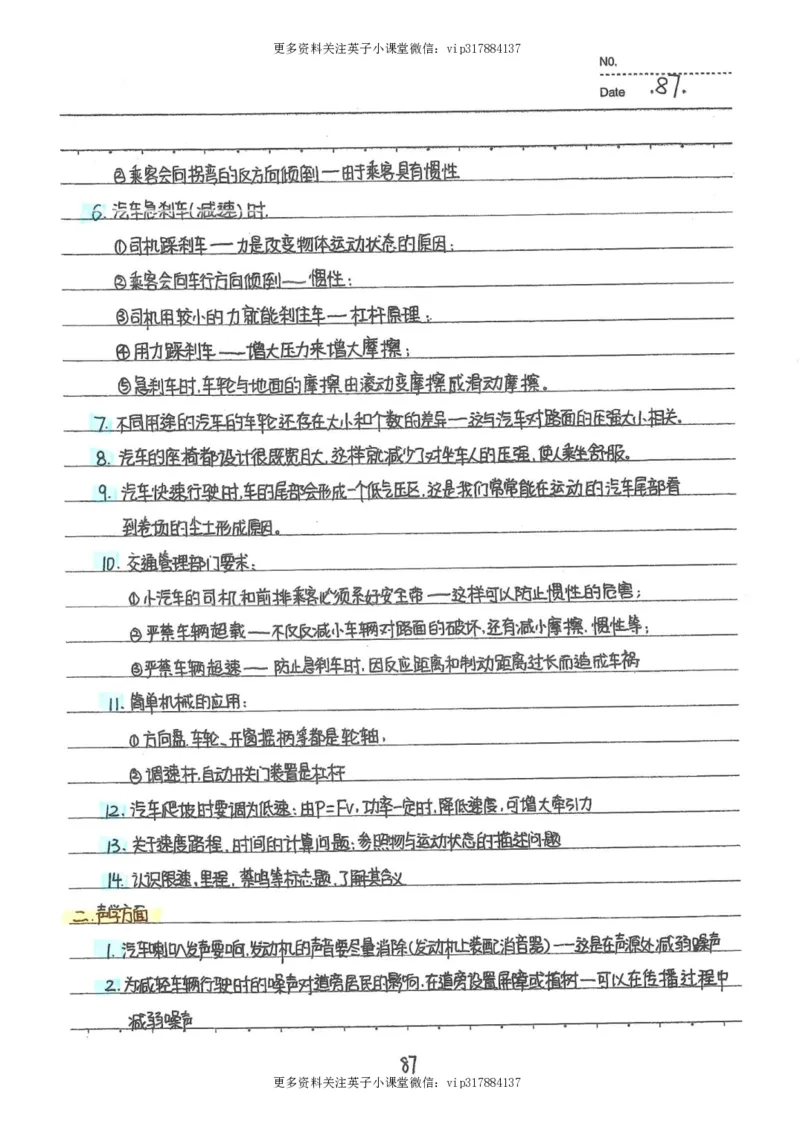 更多资料关注英子小课堂微信：vip317884137
NO.
Date .87.
②乘客会向拐弯的反方向倾倒—由于乘客具有惯性
6. 汽车急刹车(减速)时.
①司机踩刹车——力是改变物体运动状态的原因；
②乘客会向车行方向倾倒——惯性；
③司机用较小的力就能刹住车—杠杆原理；
④用力踩刹车——增大压力来增大摩擦；
⑤急刹车时,车轮与地面的摩擦由滚动变摩擦成滑动摩擦。
7. 不同用途的汽车的车轮还存在大小和个数的差异—这与汽车对路面的压强大小相关。
8. 汽车的座椅都设计很既宽且大,这样就减少了对坐车人的压强,使人乘坐舒服。
9. 汽车快速行驶时,车的尾部会形成一个低气压区,这是我们常常能在运动的汽车尾部看
到卷扬的尘土形成原因。
10. 交通管理部门要求：
①小汽车的司机和前排乘客必须系好安全带—这样可以防止惯性的危害；
②严禁车辆超载—不仅仅减小车辆对路面的破坏,还有减小摩擦.惯性等；
③严禁车辆超速—— 防止急刹车时,因反应距离和制动距离过长而造成车祸
11. 简单机械的应用：
①方向盘.车轮、开窗摇柄等都是轮轴,
②调速杆,自动开关门装置是杠杆
12. 汽车爬坡时要调为低速：由P=Fv,功率一定时,降低速度,可增大牵引力
13. 关于速度路程,时间的计算问题；参照物与运动状态的描述问题
14. 认识限速,里程, 禁鸣等标志题,了解其含义
二.声学方面
1. 汽车喇叭发声要响,发动机的声音要尽量消除(发动机上装配消音器)—这是在声源处减弱噪声
2. 为减轻车辆行驶时的噪声对道旁居民的影响,在道旁设置屏障或植树—可以在传播过程中
减弱噪声
87
更多资料关注英子小课堂微信：vip317884137